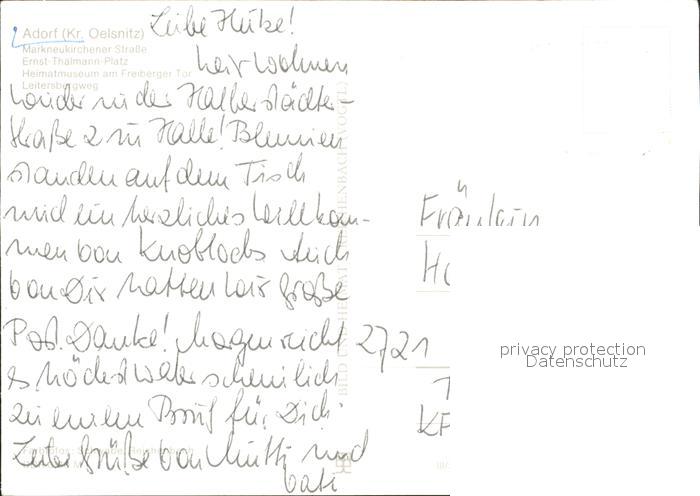 Adorf (Kr. Oelsnitz)
Markneukirchener Straße
Ernst-Thälmann-Platz
Heimatmuseum am Freiberger Tor
Leitersbergweg
Liebe
wir wohnen
wieder in der Halberstädter-
straße 2 in Halle! Blumen
standen auf dem Tisch
und ein herzliches Willkom-
men von Knoblochs. Auch
von Dir hatten wir große
Post. Danke! Morgen reicht
es höchstwahrscheinlich
zu einem Brief für Dich.
Grüße von Mutti und
Vati
Fräulein
2721
privacy protection
Datenschutz